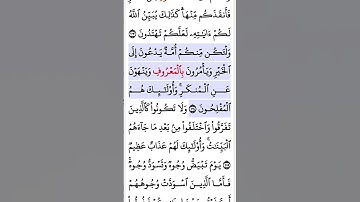 فَأَنقَذَكُم مِّنْهَاۗ كَذَٰلِكَ يُبَيِّنُ ٱللَّهُ
لَكُمْ ءَايَٰتِهِۦ لَعَلَّكُمْ تَهْتَدُونَ ١٠٣
وَلْتَكُن مِّنكُمْ أُمَّةٌ يَدْعُونَ إِلَى
ٱلْخَيْرِ وَيَأْمُرُونَ بِٱلْمَعْرُوفِ وَيَنْهَوْنَ
عَنِ ٱلْمُنكَرِۚ وَأُو۟لَٰٓئِكَ هُمُ
ٱلْمُفْلِحُونَ ١٠٤ وَلَا تَكُونُوا۟ كَٱلَّذِينَ
تَفَرَّقُوا۟ وَٱخْتَلَفُوا۟ مِنۢ بَعْدِ مَا جَآءَهُمُ
ٱلْبَيِّنَٰتُۚ وَأُو۟لَٰٓئِكَ لَهُمْ عَذَابٌ عَظِيمٌ
١٠٥ يَوْمَ تَبْيَضُّ وُجُوهٌ وَتَسْوَدُّ وُجُوهٌۚ
فَأَمَّا ٱلَّذِينَ ٱسْوَدَّتْ وُجُوهُهُمْ